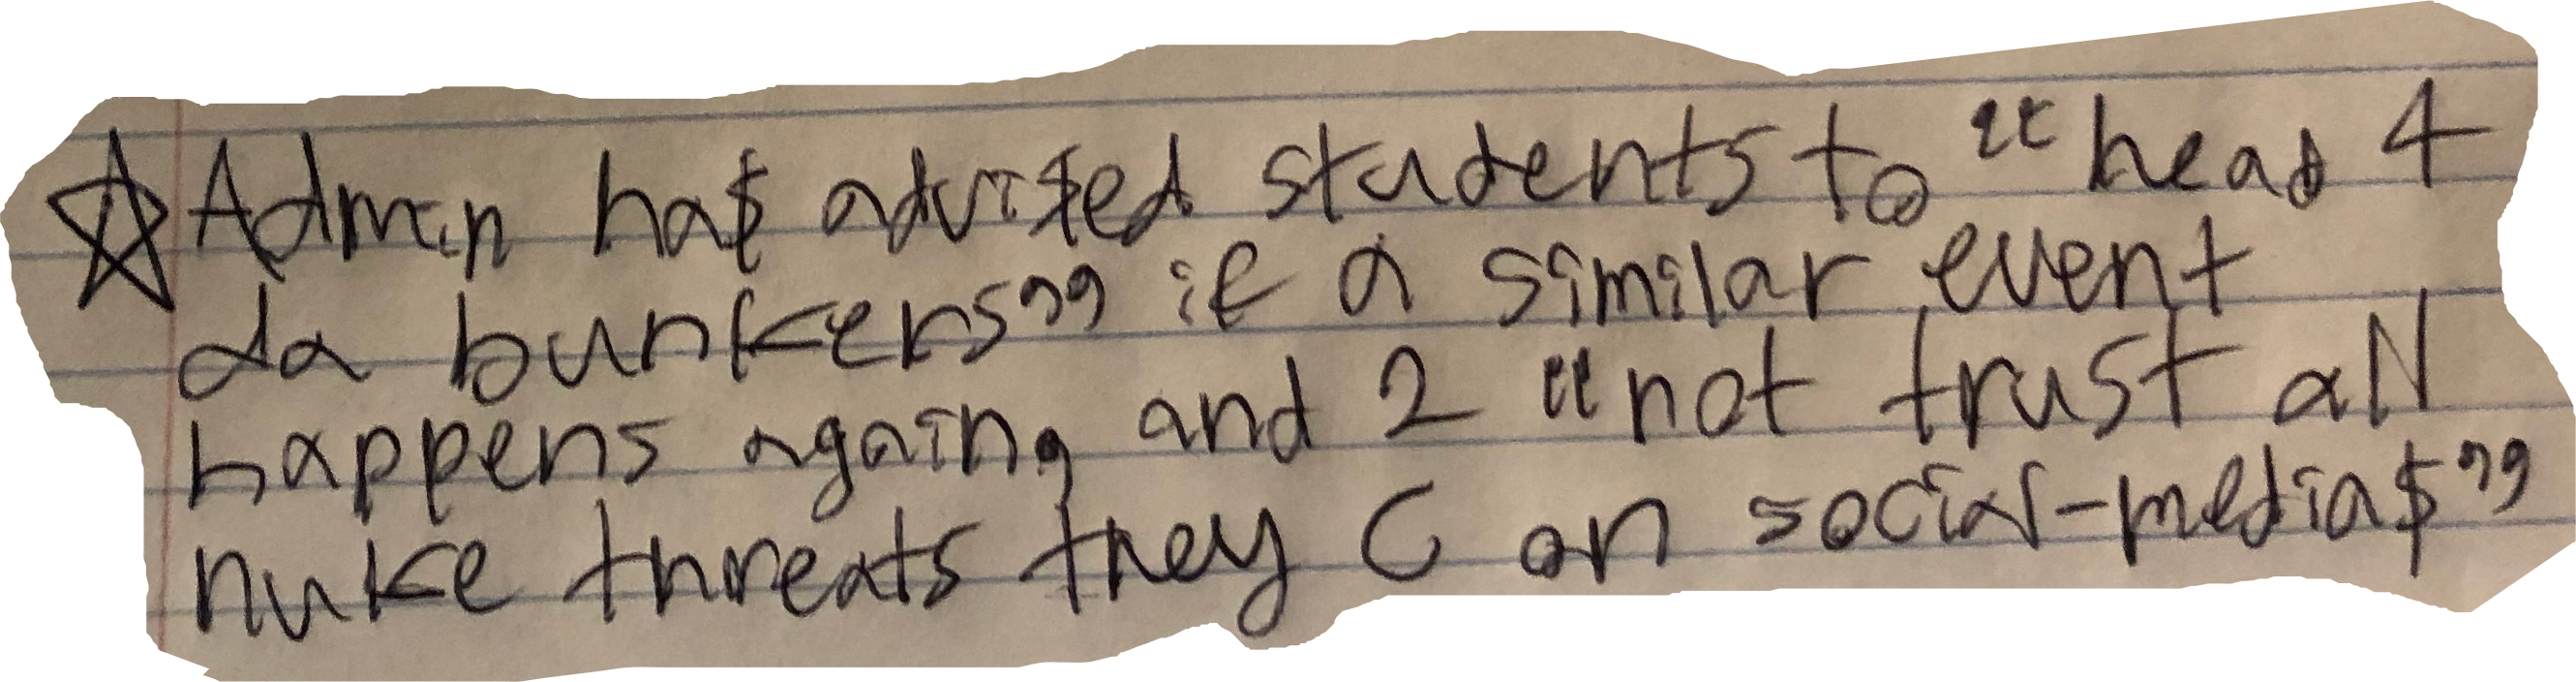 ☆ Admin ha$ advi$ed students to "head 4
da bunkers" if a similar event
happens again, and 2 "not trust all
nuke threats they C on social-media$"